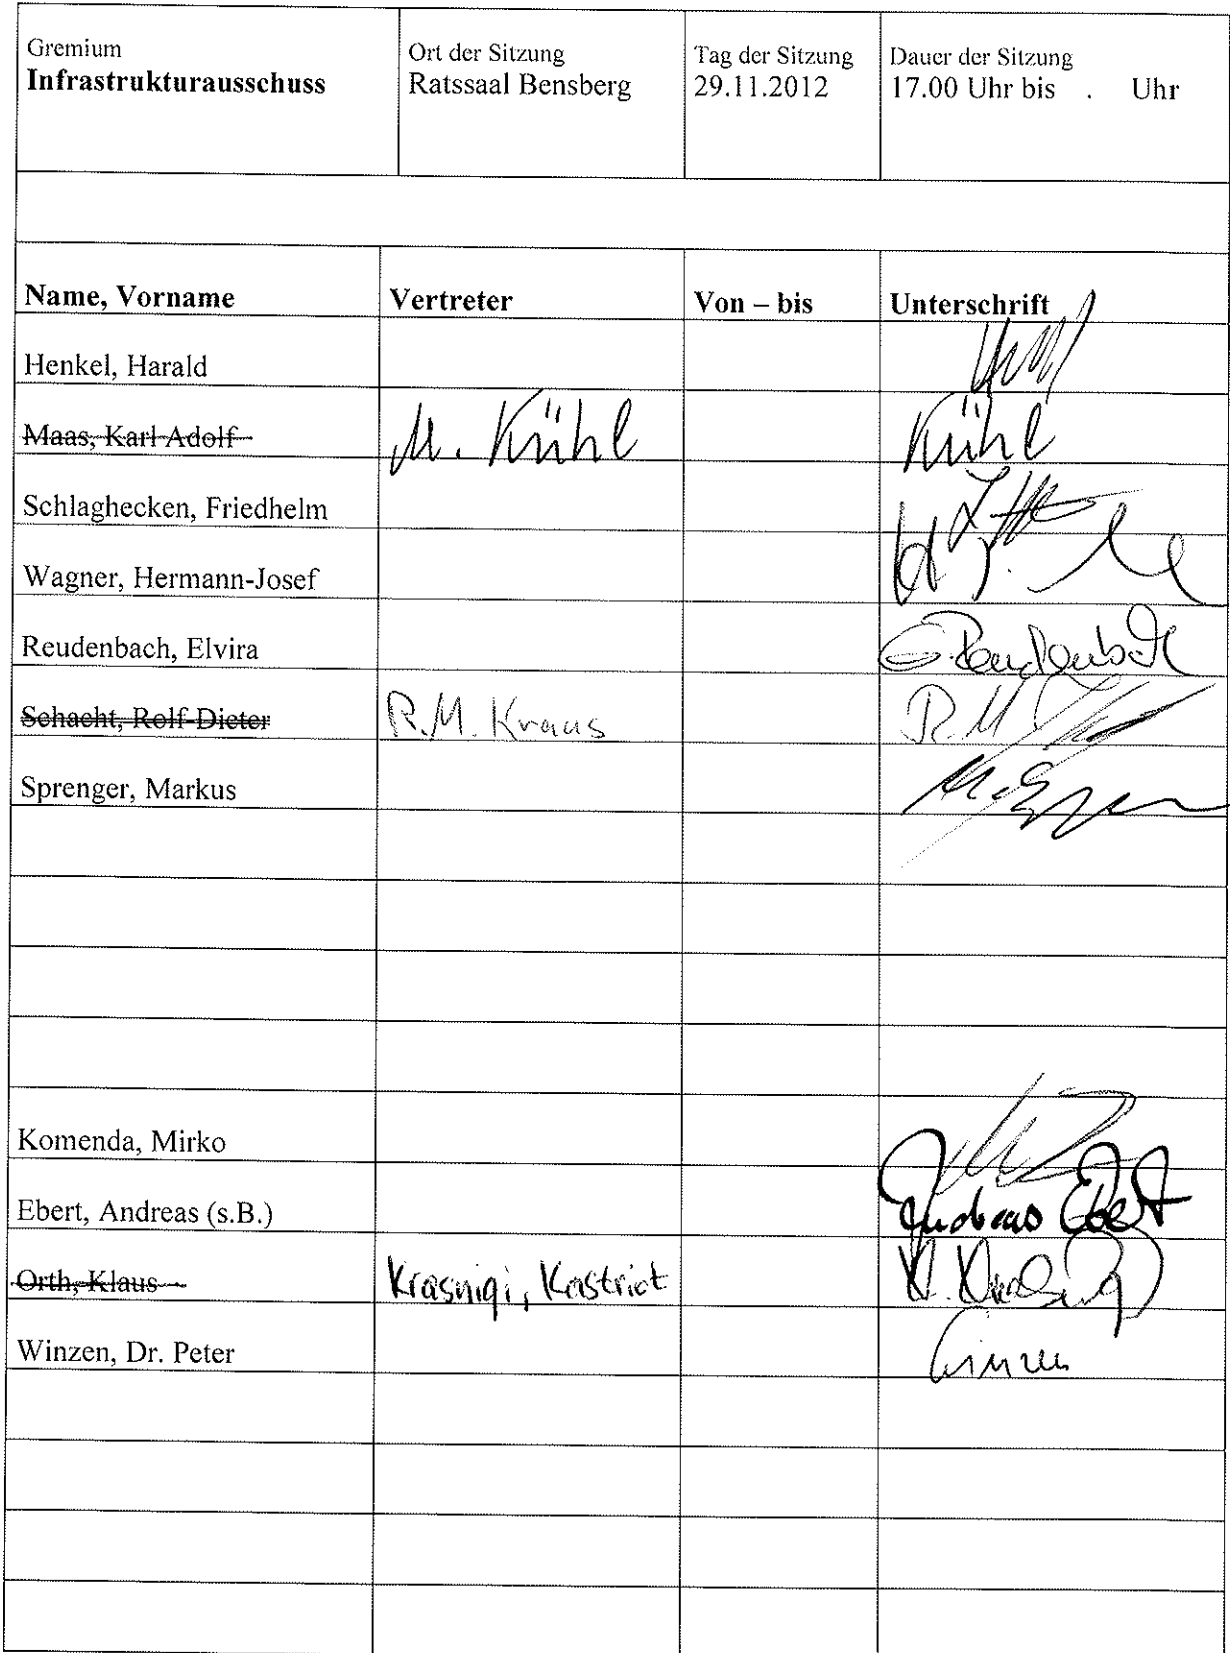 Gremium
Infrastrukturausschuss
Ort der Sitzung
Ratssaal Bensberg
Tag der Sitzung
29.11.2012
Dauer der Sitzung
17.00 Uhr bis . Uhr
Name, Vorname Vertreter Von – bis Unterschrift
Henkel, Harald
Maas, Karl Adolf M. Kühl Kühl
Schlaghecken, Friedhelm
Wagner, Hermann-Josef
Reudenbach, Elvira E. Reudenbach
Schacht, Rolf-Dieter R.M. Kraus R.M.
Sprenger, Markus
Komenda, Mirko
Ebert, Andreas (s.B.) Andreas Ebert
Orth, Klaus Krasniqi, Kastriot K. Krasniqi
Winzen, Dr. Peter Winzen